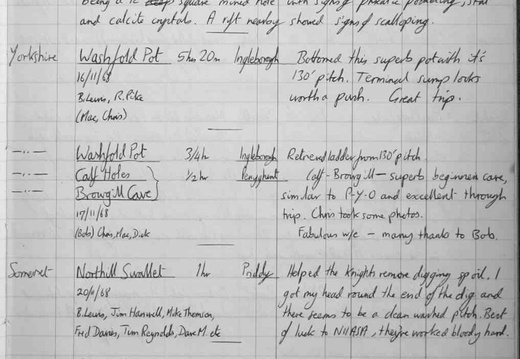 being a 12' square mined hole with signs of phreatic
and calcite crystals. A rift nearby showed signs of scalloping.
Yorkshire Washfold Pot 5hr 20m Ingleborough Bottomed this superb pot with it's
16/11/68 130' pitch. Terminal sump looks
B. Lewis, R. Pike worth a push. Great trip.
(Mac, Chris)
—··— Washfold Pot 3/4h Ingleborough Retrieved ladder from 130' pitch
—··— Calf Holes 1/2hr Penyghent Calf-Browgill — superb beginners cave,
—··— Browgill Cave similar to P-Y-O and excellent through
17/11/68 trip. Chris took some photos.
(Bob) Chris, Mac, Dick Fabulous w/e — many thanks to Bob.
Somerset Northill Swallet 1hr Priddy Helped the Knights remove digging spoil. I
20/11/68 got my head round the end of the dig and
B. Lewis, Jim Hanwell, Mike Thomson, there seems to be a clean washed pitch. Best
Fred Davies, Tim Reynolds, Dave M. etc of luck to NHASA, they've worked bloody hard.